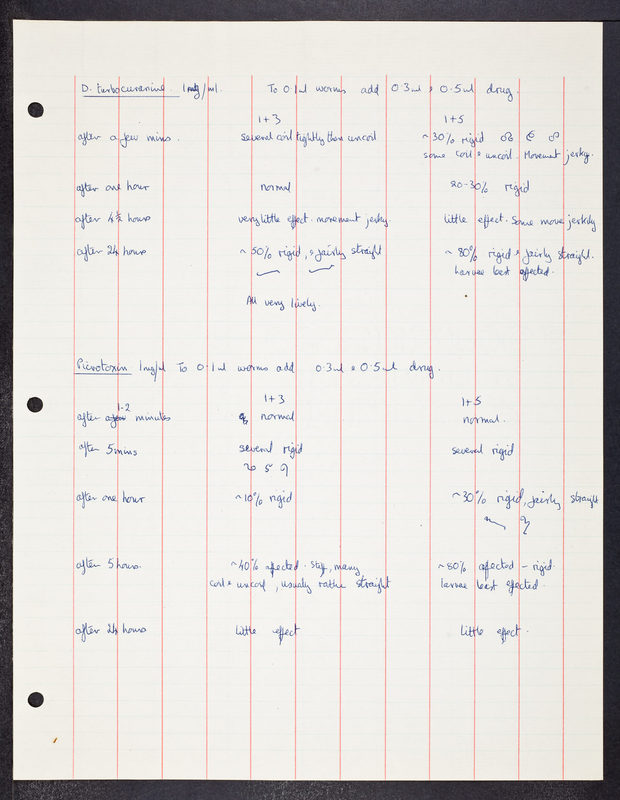 D. turbocuranine. 1mg/ml. To 0.1ml worms add 0.3ml & 0.5ml drug.
1+3 1+5
after a few mins. several coil tightly then uncoil ~30% rigid
some coil & uncoil. Movement jerky.
after one hour normal 20-30% rigid
after 4½ hours very little effect. movement jerky. little effect. Some move jerkily
after 24 hours ~50% rigid, & fairly straight ~80% rigid & fairly straight.
Larvae least affected.
All very lively.
Picrotoxin 1mg/ml To 0.1ml worms add 0.3ml & 0.5ml drug.
1+3 1+5
after 1-2 minutes normal normal.
after 5 mins several rigid several rigid
after one hour ~10% rigid ~30% rigid, fairly straight
after 5 hours. ~40% affected. Stiff, many ~80% affected - rigid.
coil & uncoil, usually rather straight larvae least affected.
after 24 hours little effect little effect.